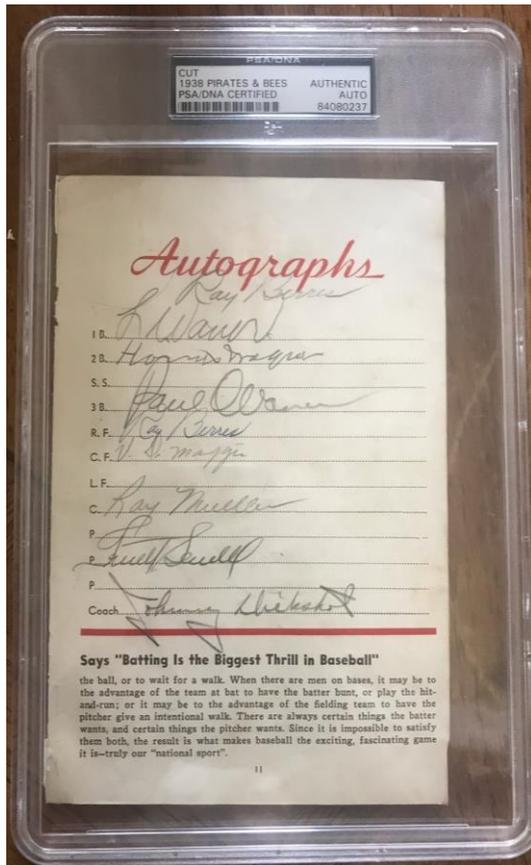 PSA/DNA
CUT
1938 PIRATES & BEES AUTHENTIC
PSA/DNA CERTIFIED AUTO
84080237
Autographs
Ray Berres
1 B. L Waner
2 B. Honus Wagner
S. S.
3 B. Paul Waner
R. F. Ray Berres
C. F. V. D. Maggio
L. F.
C. Ray Mueller
P.
P. Truett Sewell
P.
Coach Johnny Dickshot
Says "Batting Is the Biggest Thrill in Baseball"
the ball, or to wait for a walk. When there are men on bases, it may be to
the advantage of the team at bat to have the batter bunt, or play the hit-
and-run; or it may be to the advantage of the fielding team to have the
pitcher give an intentional walk. There are always certain things the batter
wants, and certain things the pitcher wants. Since it is impossible to satisfy
them both, the result is what makes baseball the exciting, fascinating game
it is—truly our "national sport".
11